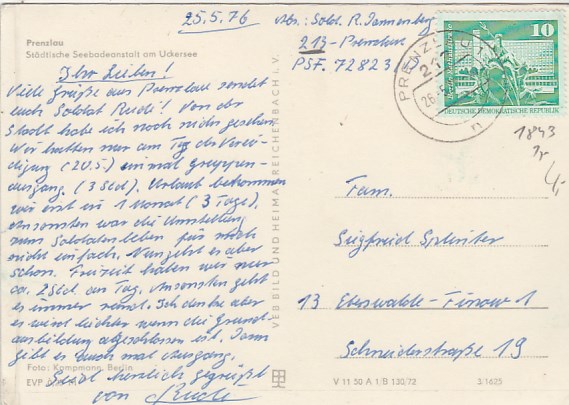 25.5.76
Abs.: Sold. R. Dannenberg
213 - Prenzlau
PSF. 72823
Prenzlau
Städtische Seebadeanstalt am Uckersee
Ihr Lieben!
Viele Grüße aus Prenzlau sendet
euch Soldat Rudi! Von der
Stadt habe ich noch nichts gesehen.
Wir hatten nur am Tag der Verei-
digung (20.5) einmal Gruppen-
ausgang. (3 Std). Urlaub bekommen
wir erst in 1 Monat (3 Tage).
Ansonsten war die Umstellung
zum Soldatenleben für mich
nicht einfach. Nun geht es aber
schon. Freizeit haben wir nur
ca. 2 Std. am Tag. Ansonsten geht
es immer rund. Ich denke aber
es wird leichter wenn die Grund-
ausbildung abgeschlossen ist. Dann
gibt es auch mal Ausgang.
Seid herzlich gegrüßt
von Rudi
Foto: Kampmann, Berlin
EVP
VEB BILD UND HEIMAT REICHENBACH i. V.
PRENZLAU
10
DEUTSCHE DEMOKRATISCHE REPUBLIK
1843
Fam.
Siegfried Splinter
13 Eberswalde-Finow 1
Schneiderstraße 19
V 11 50 A 1/B 130/72
3/1625